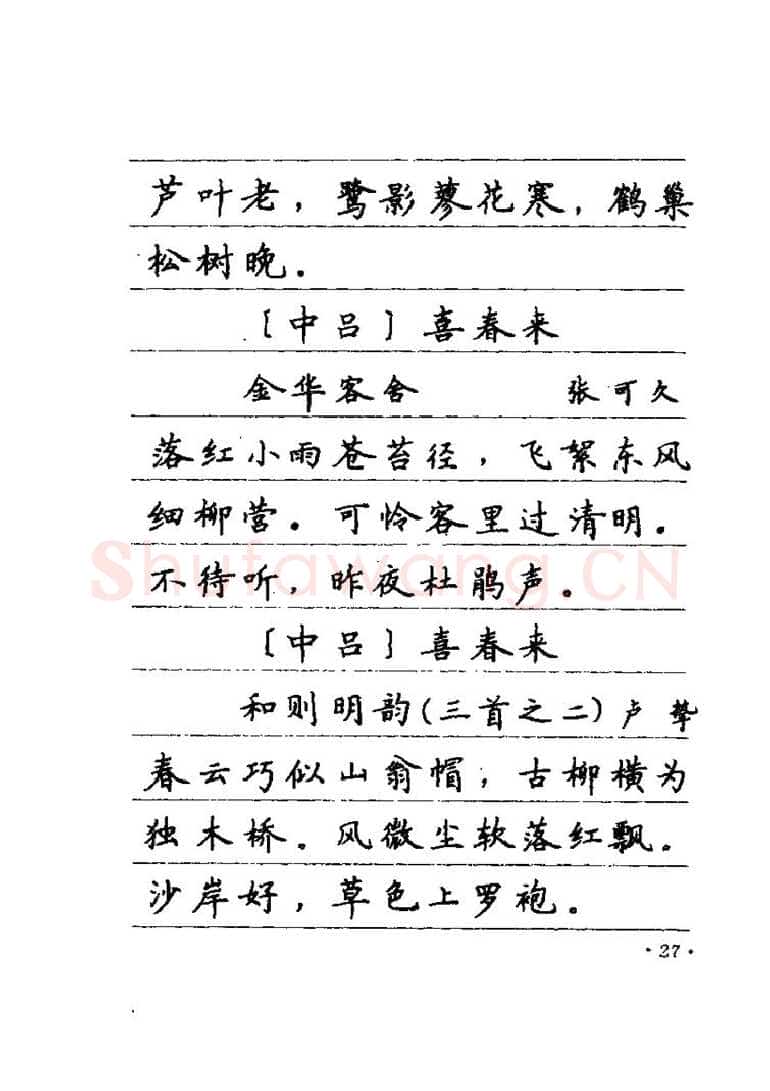 芦叶老，鹭影蓼花寒，鹤巢
松树晚。
〔中吕〕喜春来
金华客舍 张可久
落红小雨苍苔径，飞絮东风
细柳营。可怜客里过清明。
不待听，昨夜杜鹃声。
〔中吕〕喜春来
和则明韵(三首之二) 卢挚
春云巧似山翁帽，古柳横为
独木桥。风微尘软落红飘。
沙岸好，草色上罗袍。
·27·
Shufawang.CN